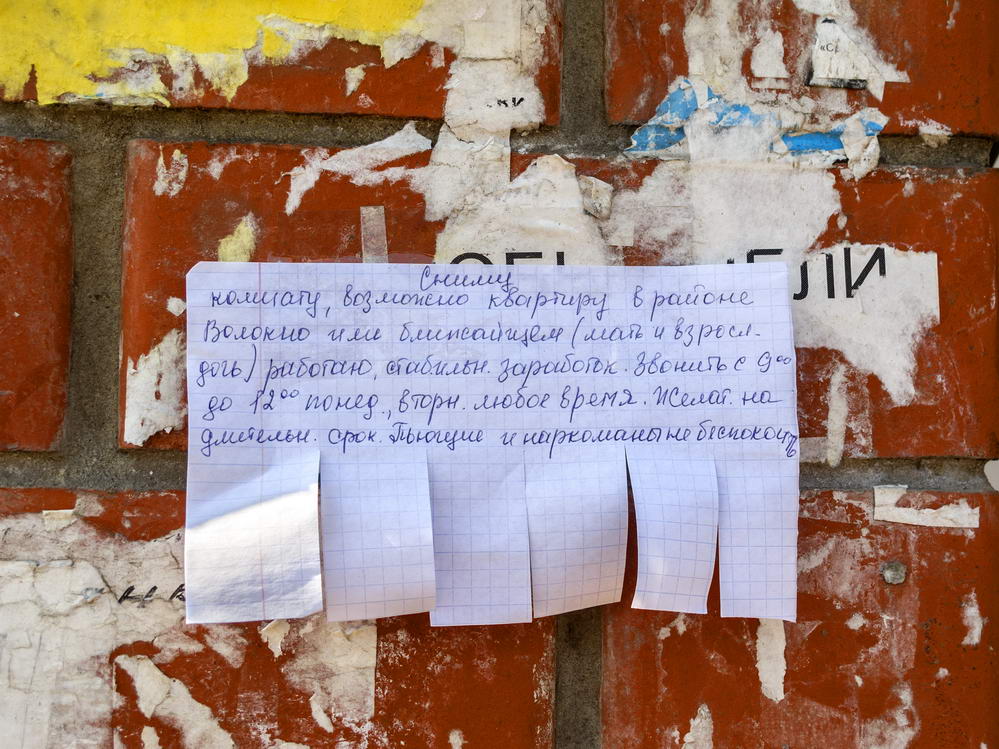 «СЕ
ки
ОБЪ
ЕЛИ
Сниму
комнату, возможно квартиру в районе
Волокно или ближайщем (мать и взросл-
дочь) работаю, стабильн. заработок. Звонить с 9⁰⁰
до 12⁰⁰ понед., вторн. любое время. Желат. на
длительн. срок. Пьющие и наркоманы не беспокоить